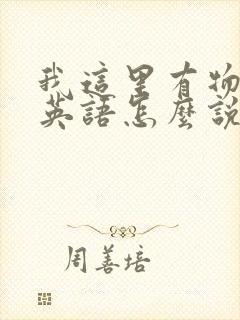 我這里有物
英語怎麼說
周善培